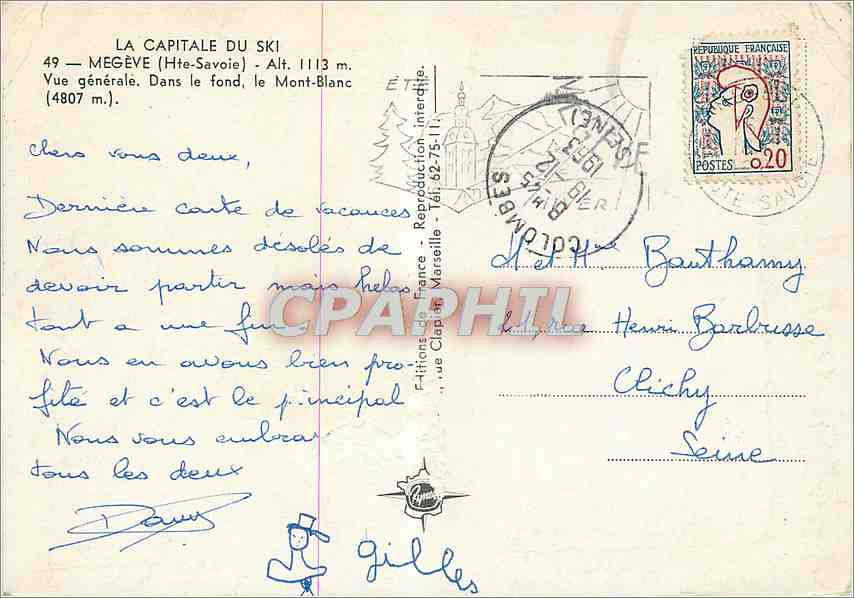 LA CAPITALE DU SKI
49 — MEGÈVE (Hte-Savoie) - Alt. 1113 m.
Vue générale. Dans le fond, le Mont-Blanc
(4807 m.).
Chers vous deux,
Dernière carte de vacances
Nous sommes désolés de
devoir partir mais helas
tout a une fin.
Nous en avons bien pro-
fité et c'est le principal
Nous vous embras
tous les deux
Gilles
Editions de France - Reproduction interdite.
rue Clapier, Marseille - Tél. 62-75-11
ÉTÉ
COLOMBES
(SEINE)
8H45
19-12
1963
REPUBLIQUE FRANÇAISE
POSTES 0,20
HTE SAVOIE
M et Mme Bauthamy
Henri Barbusse
Clichy
Seine
CPAPHIL